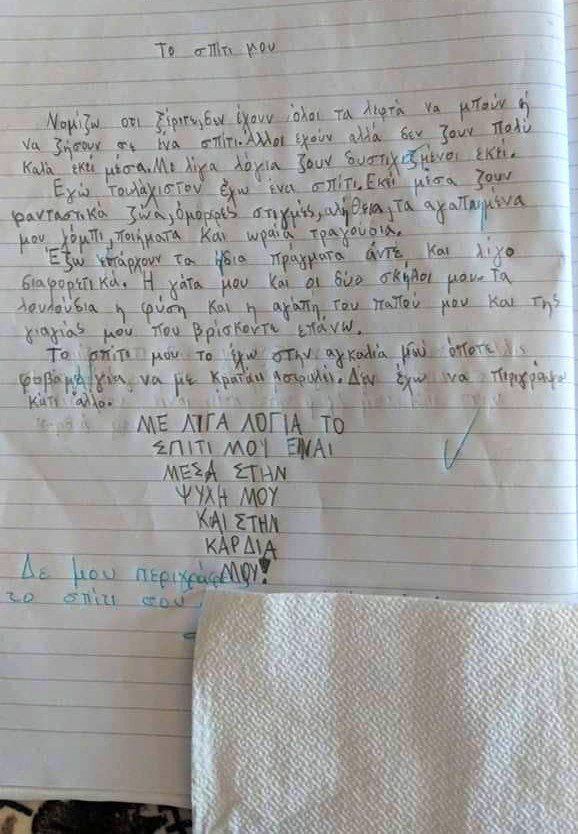 Το σπίτι μου
Νομίζω οτι ξέριτε, δεν έχουν όλοι τα λεφτά να μπούν ή
να ζήσουν σε ένα σπίτι. Άλλοι έχουν αλλά δεν ζουν πολύ
καλά εκεί μέσα. Με λίγα λόγια ζουν δυστιχιζμένοι εκεί.
Εγώ τουλάχιστον έχω ένα σπίτι. Εκεί μέσα ζουν
φανταστικά ζώα, όμορφες στιγμές, αλήθεια, τα αγαπημένα
μου χόμπι, ποιήματα και ωραία τραγούδια.
Έξω υπάρχουν τα ίδια πράγματα άντε και λίγο
διαφορετικά. Η γάτα μου και οι δύο σκήλοι μου. Τα
λουλούδια η φύση και η αγάπη του παπού μου και της
γιαγιάς μου που βρίσκοντε επάνω.
Το σπίτι μου το έχω στην αγκαλιά μου όποτε
φοβάμε για να με κρατάει. Δεν έχω να περιγράψω
κάτι άλλο.
ΜΕ ΛΙΓΑ ΛΟΓΙΑ ΤΟ
ΣΠΙΤΙ ΜΟΥ ΕΙΝΑΙ
ΜΕΣΑ ΣΤΗΝ
ΨΥΧΗ ΜΟΥ
ΚΑΙ ΣΤΗΝ
ΚΑΡΔΙΑ
ΜΟΥ!
Δε μου περιγράφεις
το σπίτι σου